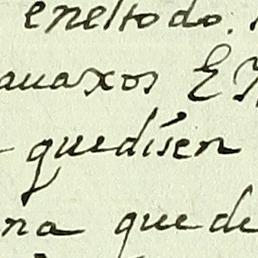 eneltodo.
auaxos E
quedisen
na que de